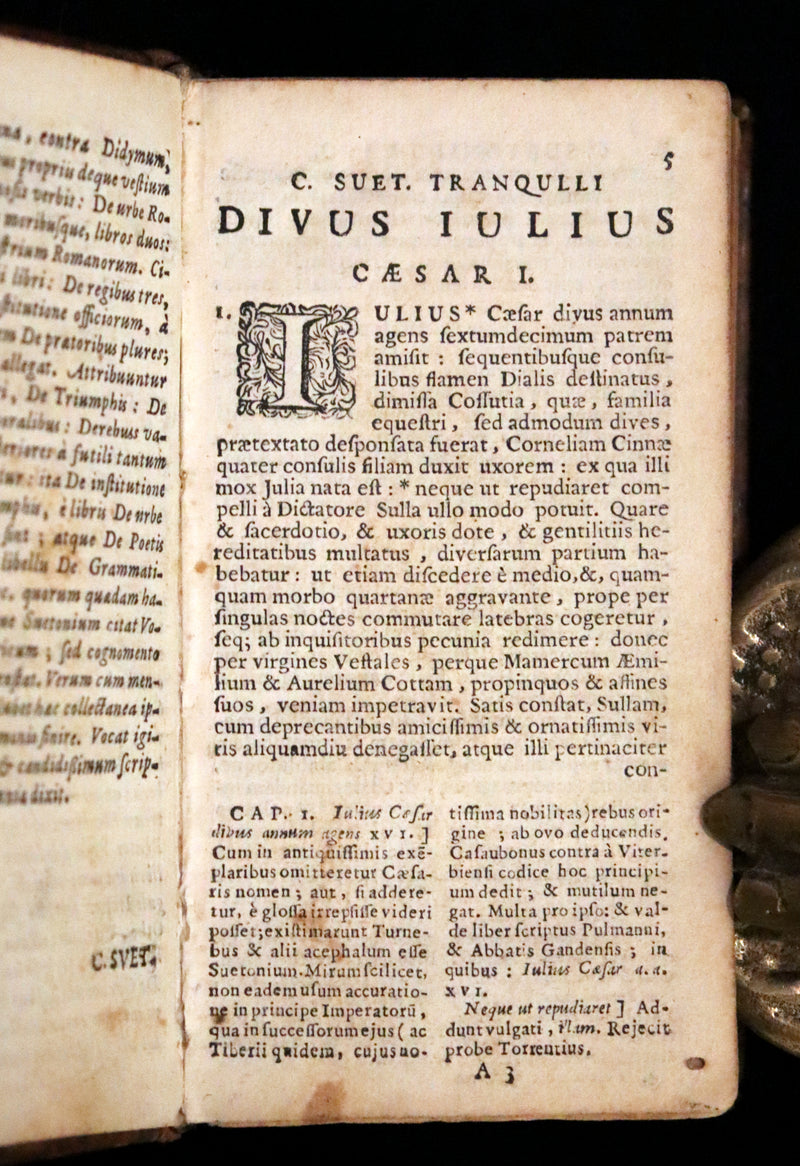 na, contra Didymum,
propriu deque vestium
verbis: De urbe Ro-
moribusque, libros duos:
Romanorum. Ci-
libri: De regibus tres,
officiorum, à
De prætoribus plures;
Attribuuntur
De Triumphis: De
De rebus va-
a futili tantum
ita De institutione
è libris De urbe
atque De Poetis
De Grammati-
quorum quædam ha-
citat Vo-
sed cognomento
Verum cum men-
collectanea ip-
Vocat igi-
candidissimum scrip-
C. SVET.
5
C. SUET. TRANQULLI
DIVUS IULIUS
CÆSAR I.
1. IULIUS* Cæſar divus annum
agens ſextumdecimum patrem
amiſit : ſequentibuſque conſu-
libus flamen Dialis deſtinatus,
dimiſſa Coſſutia, quæ, familia
equeſtri, ſed admodum dives,
prætextato deſponſata fuerat, Corneliam Cinnæ
quater conſulis filiam duxit uxorem : ex qua illi
mox Julia nata eſt : * neque ut repudiaret com-
pelli à Dictatore Sulla ullo modo potuit. Quare
& ſacerdotio, & uxoris dote, & gentilitiis he-
reditatibus multatus, diverſarum partium ha-
bebatur : ut etiam diſcedere è medio, &, quam-
quam morbo quartanæ aggravante, prope per
ſingulas noctes commutare latebras cogeretur,
ſeq; ab inquiſitoribus pecunia redimere : donec
per virgines Veſtales, perque Mamercum Æmi-
lium & Aurelium Cottam, propinquos & affines
ſuos, veniam impetravit. Satis conſtat, Sullam,
cum deprecantibus amiciſſimis & ornatiſſimis vi-
ris aliquamdiu denegaſſet, atque illi pertinaciter
con-
CAP. I. Iulius Cæſar
divus annum agens XVI. ]
Cum in antiquiſſimis exē-
plaribus omitteretur Cæſa-
ris nomen ; aut, ſi addere-
tur, è gloſſa irrepſiſſe videri
poſſet; exiſtimarunt Turne-
bus & alii acephalum eſſe
Suetonium. Mirum ſcilicet,
non eadem uſum accuratio-
ne in principe Imperatorū,
qua in ſucceſſorum ejus ( ac
Tiberii quidem, cujus no-
tiſſima nobilitas) rebus ori-
gine ; ab ovo deducendis.
Caſaubonus contra à Viter-
bienſi codice hoc principi-
um dedit ; & mutilum ne-
gat. Multa pro ipſo: & val-
de liber ſcriptus Pulmanni,
& Abbatis Gandenſis ; in
quibus : Iulius Cæſar a. a.
XVI.
Neque ut repudiaret ] Ad-
dunt vulgati, illam. Rejecit
probe Torrentius.
A 3